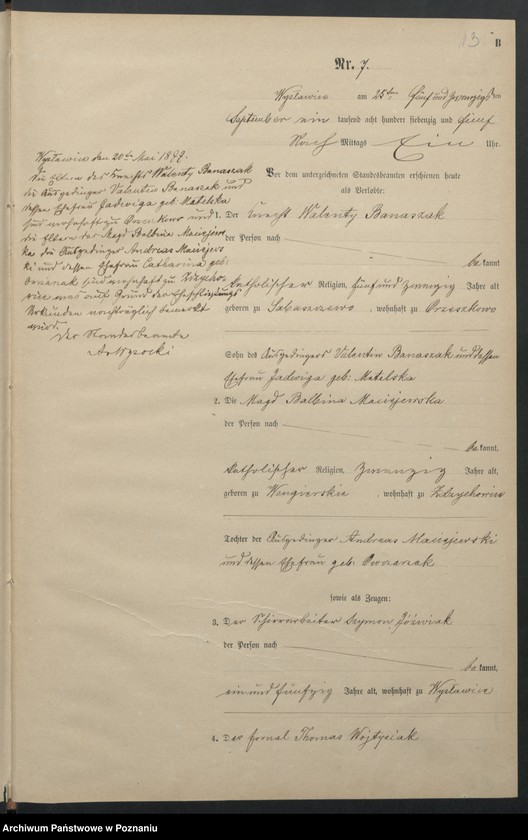 13 B
Nr. 7.
Wyslawice am 25ten fünf und zwanzigsten
September ein tausend acht hundert siebenzig und fünf
Nach Mittags Ein Uhr.
Vor dem unterzeichneten Standesbeamten erschienen heute
als Verlobte:
1. Der Knecht Walenty Banaszak
der Person nach
be kannt
katholischer Religion, fünf und zwanzig Jahre alt
geboren zu , wohnhaft zu Orzeszkowo
Sohn des Ausgedingers Valentin Banaszak und dessen
Ehefrau Jadwiga geb: Matelska
2. Die Magd Balbina Maciejewska
der Person nach
be kannt,
katholischer Religion, zwanzig Jahre alt,
geboren zu Wengierskie , wohnhaft zu Zdzychowice
Tochter der Ausgedinger Andreas Maciejewski
und dessen Ehefrau geb: Owczarzak
sowie als Zeugen:
3. Der Szymon Józwiak
der Person nach
be kannt,
ein und fünfzig Jahre alt, wohnhaft zu Wyslawice
4. Der Fornal Thomas Wojtysiak
Wyslawice den 20ten Mai 1899.
Die Eltern des Knechts Walenty Banaszak
die Ausgedinger Valentin Banaszak und
dessen Ehefrau Jadwiga geb: Matelska
sind wohnhaft zu und
die Eltern der Magd Balbina Maciejews
ka die Ausgedinger Andreas Maciejews
ki und dessen Ehefrau Catharina geb:
sind wohnhaft zu
was auf Grund der Eheschließungs
Urkunden nachträglich bemerkt
wird.
Der Standesbeamte
Archiwum Państwowe w Poznaniu